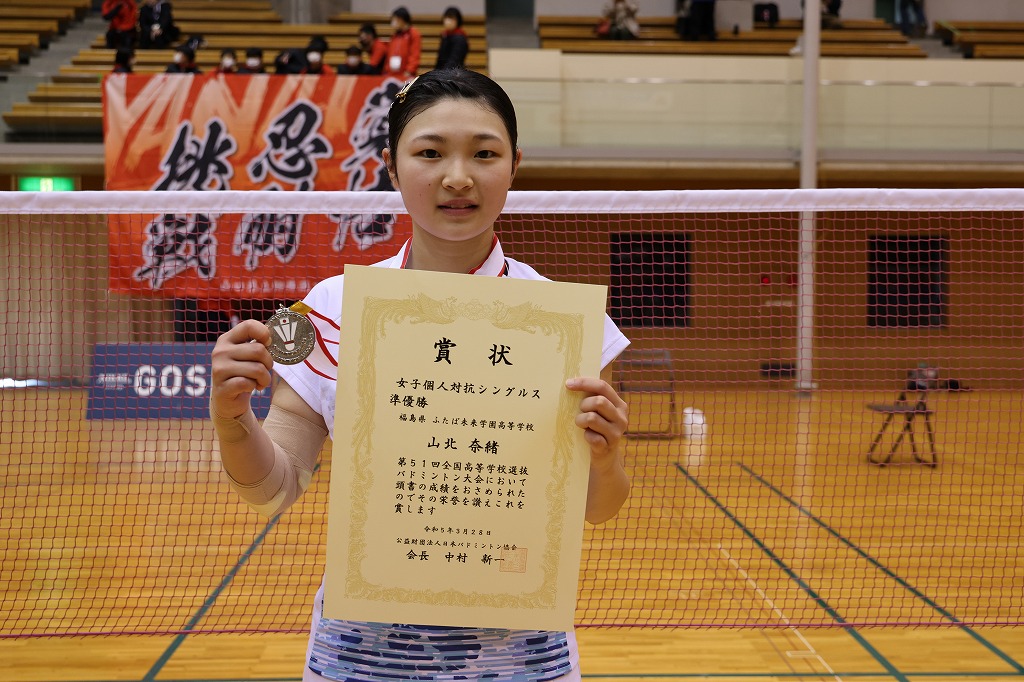 挑戦
忍耐
GOS
賞状
女子個人対抗シングルス
準優勝
福島県 ふたば未来学園高等学校
山北 奈緒
第51回全国高等学校選抜
バドミントン大会において
頭書の成績をおさめられた
のでその栄誉を讃えこれを
賞します
令和5年3月28日
公益財団法人日本バドミントン協会
会長 中村 新一